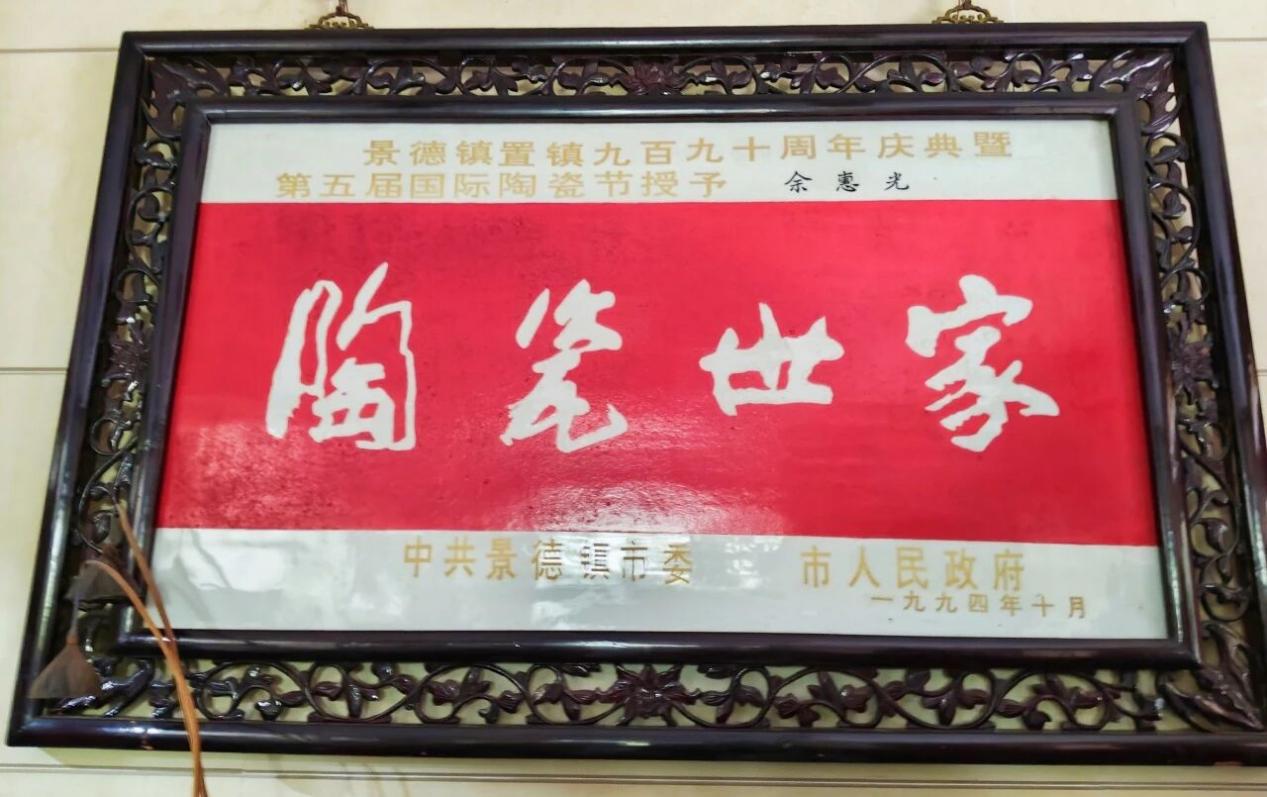 景德镇置镇九百九十周年庆典暨
第五届国际陶瓷节授予 余惠光
陶瓷世家
中共景德镇市委 市人民政府
一九九四年十月